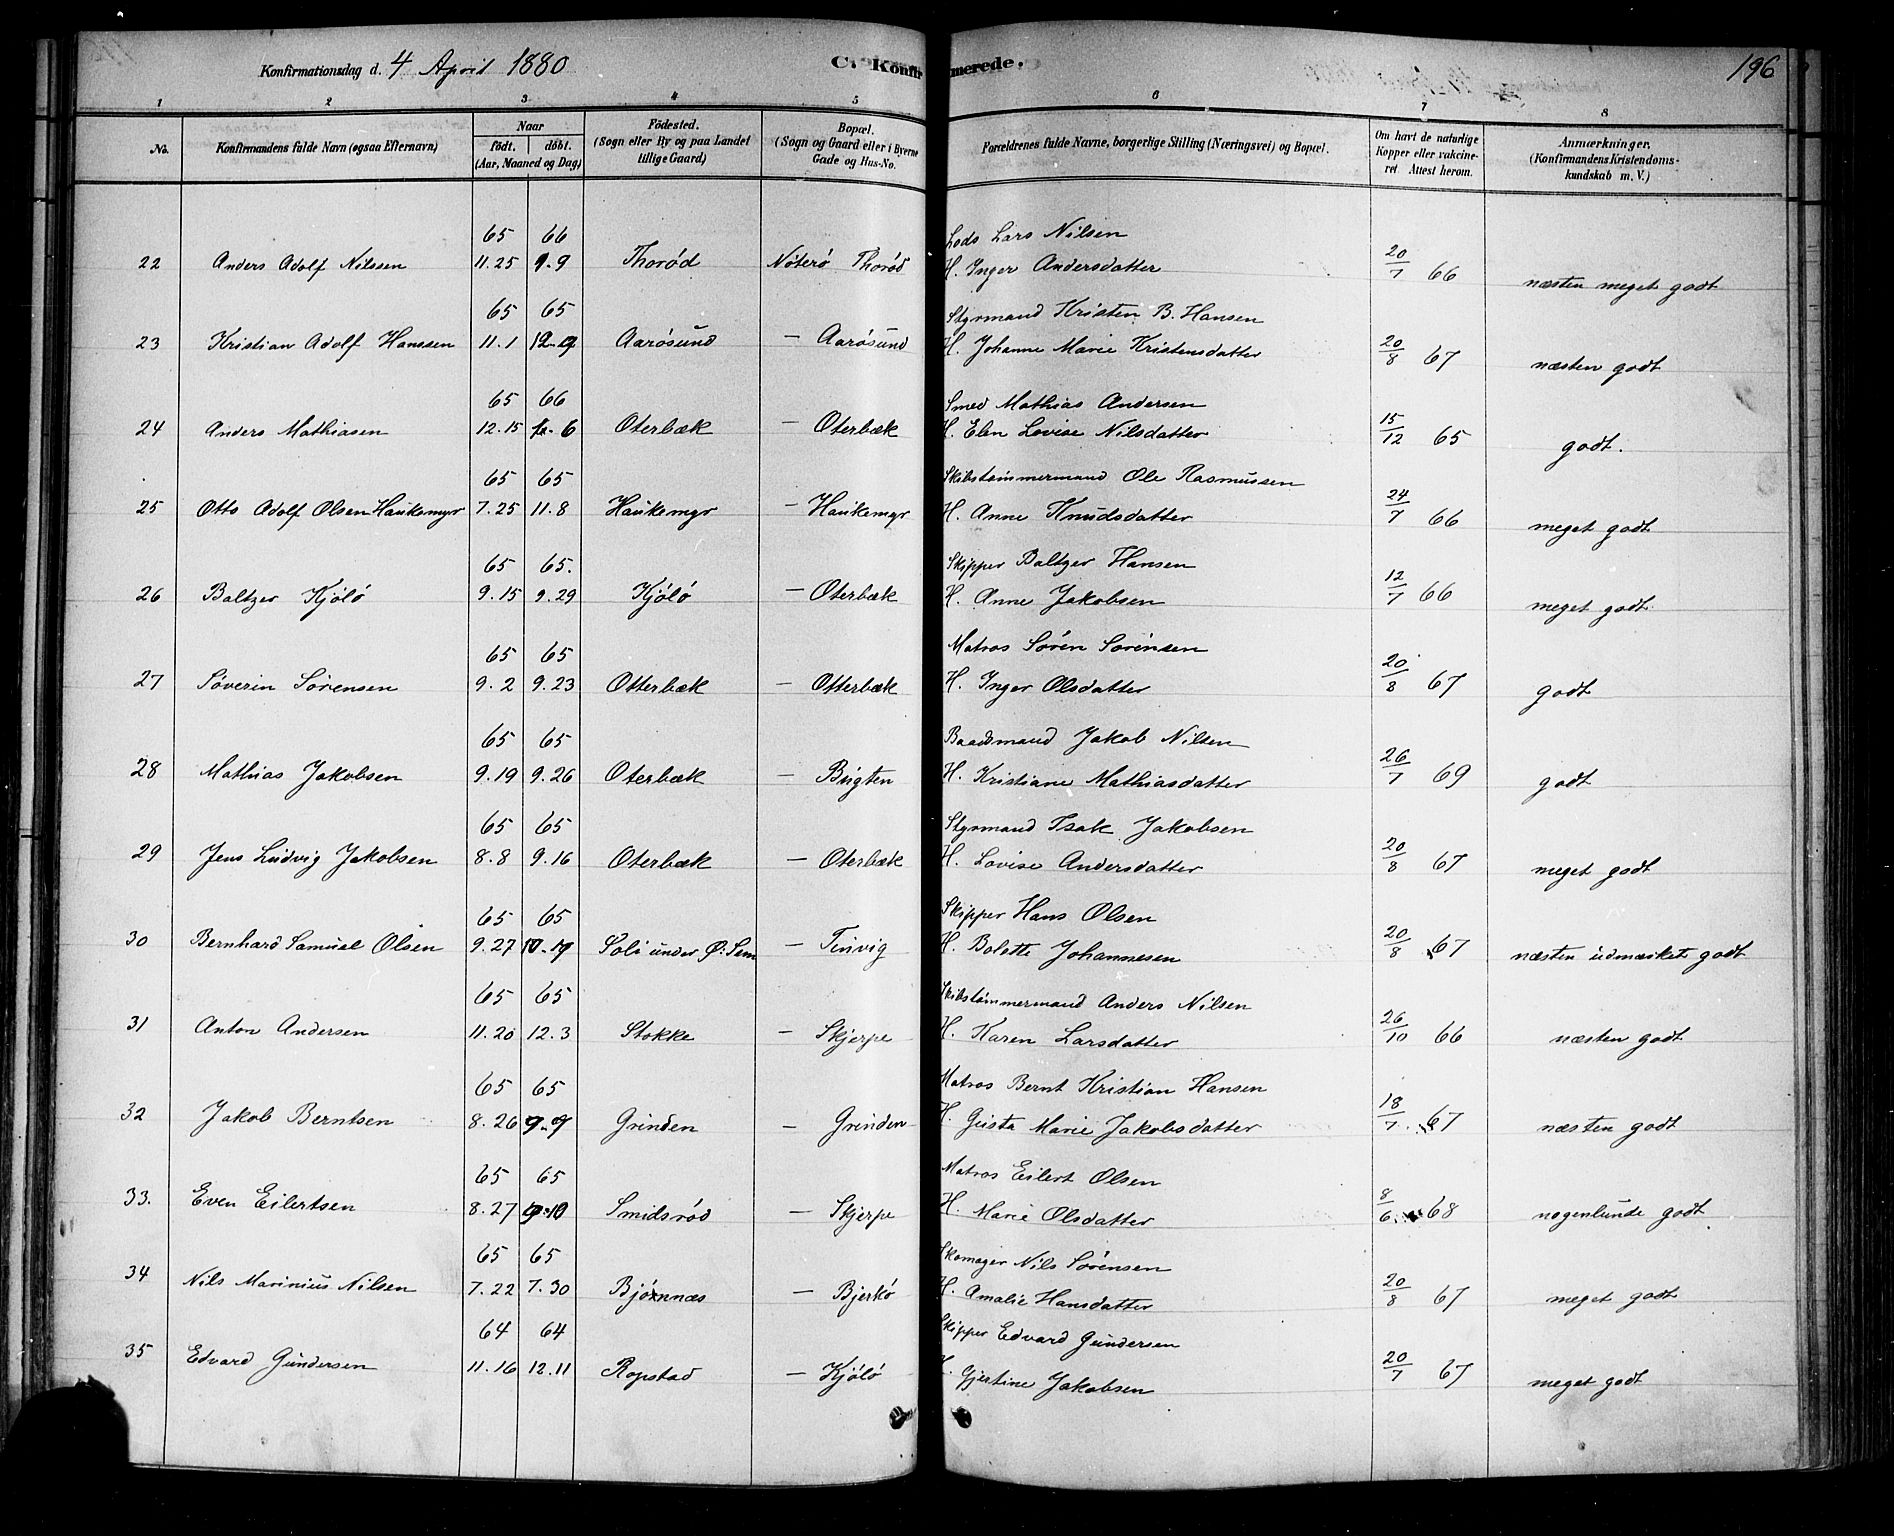 Konfirmationsdag d. 4 April 1880 C. Konfirmerede. 196
1 2 3 4 5 6 7 8
No. Konfirmandens fulde Navn (ogsaa Efternavn) Naar födt. döbt. (Aar, Maaned og Dag) Födested. (Sogn eller By og paa Landet tillige Gaard) Bopæl. (Sogn og Gaard eller i Byerne Gade og Hus-No. Forældrenes fulde Navne, borgerlige Stilling (Næringsvei) og Bopæl. Om havt de naturlige Kopper eller vakcineret Attest herom. Anmærkninger. (Konfirmandens Kristendomskundskab m. V.)
65 66 Lods Lars Nilsen
22 Anders Adolf Nilssen 11.25 9.9 Thorød Nøterø Thorød H. Inger Andersdatter 20/7 66 næsten meget godt
65 65 Styrmand Kristen B. Hansen
23 Kristian Adolf Hanssen 11.1 Aarøsund — Aarøsund H. Johanne Marie Kristensdatter 20/8 67 næsten godt
65 66 Smed Mathias Andersen
24 Anders Mathiasen 12.15 Oterbæk — Oterbæk H. Elen Lovise Nilsdatter 15/12 65 godt.
65 65 Skibstømmermand Ole Rasmussen
25 Otto Adolf Olsen Haukemyr 7.25 11.8 Haukemyr — Haukemyr H. Anne Knudsdatter 24/7 66 meget godt
65 65. Skipper Baltzer Hansen
26 Baltzer Kjölö 9.15 9.29 Kjölö — Oterbæk H. Anne Jakobsen 12/7 66 meget godt
65 65 Matros Søren Sørensen
27 Søverin Sørensen 9.2 9.23 Otterbæk — Otterbæk H. Inger Olsdatter 20/8 67 godt
65 65 Baadsmand Jakob Nilsen
28 Mathias Jakobsen 9.19 9.26 Oterbæk — Bugten H. Kristiane Mathiasdatter 26/7 69 godt
65 65 Styrmand Isak Jakobsen
29 Jens Ludvig Jakobsen 8.8 9.16 Oterbæk — Oterbæk H. Lovise Andersdatter 20/8 67 meget godt
65 65 Skipper Hans Olsen
30 Bernhard Samuel Olsen 9.27 Soli under Ø. Sem — Tinvig H. Bolette Johannesen 20/8 67 næsten udmærket godt
65 65 Skibstømmermand Anders Nilsen
31 Anton Andersen 11.20 12.3 Stokke — Skjerpe H. Karen Larsdatter 26/10 66 næsten godt
65 65 Matros Bernt Kristian Hansen
32 Jakob Berntsen 8.26 Grinden — Grinden H. Gusta Marie Jakobsdatter 18/7 67 næsten godt
65 65 Matros Eilert Olsen
33. Even Eilertsen 8.27 Smidsrød — Skjerpe H. Marie Olsdatter 8/6 68 nogenlunde godt
65 65 Skomager Nils Sørensen
34 Nils Marinius Nilsen 7.22 7.30 Bjønnæs — Bjerkø H. Amalie Hansdatter 20/8 67 meget godt
64 64 Skipper Edvard Gundersen
35 Edvard Gundersen 11.16 12.11 Ropstad — Kjölö H. Gjertine Jakobsen 20/7 67 meget godt